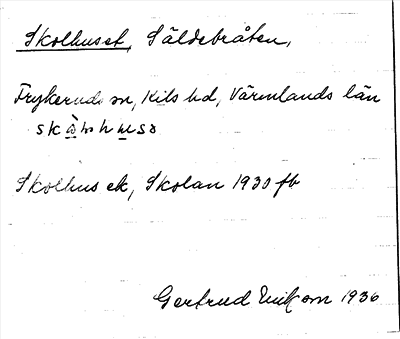 Skolhuset, Säldebråten,
Frykeruds sn, Kils hd, Värmlands län
Skolhus ek, Skolan 1930 fb
Gertrud Eriksson 1936